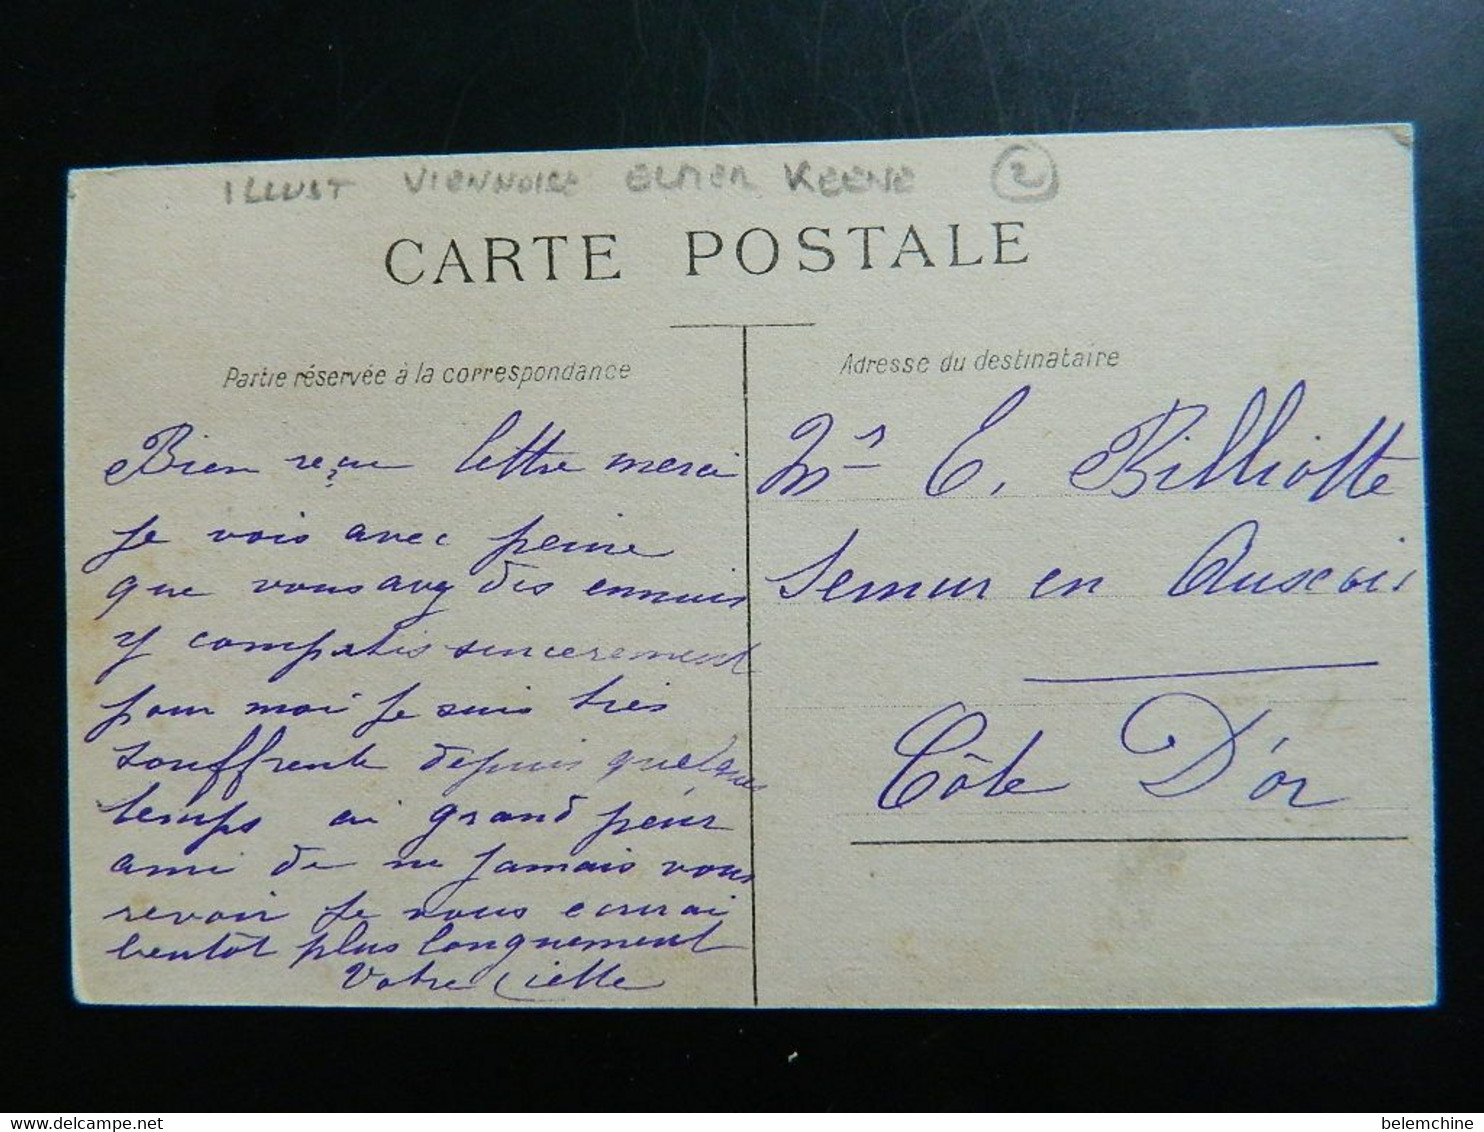 ILLUST VIENNOISE ELMER KEENE 2
CARTE POSTALE
Partie réservée à la correspondance
Adresse du destinataire
Bien reçu lettre merci
je vois avec peine
que vous avez des ennuis
y compatis sincerement
pour moi je suis très
souffrente depuis quelques
temps ai grand peur
ami de ne jamais vous
revoir je vous ecrirai
bentôt plus longuement
Votre
Mr E. Billiotte
Semur en Auxois
Côte D'or
delcampe.net
belemchine